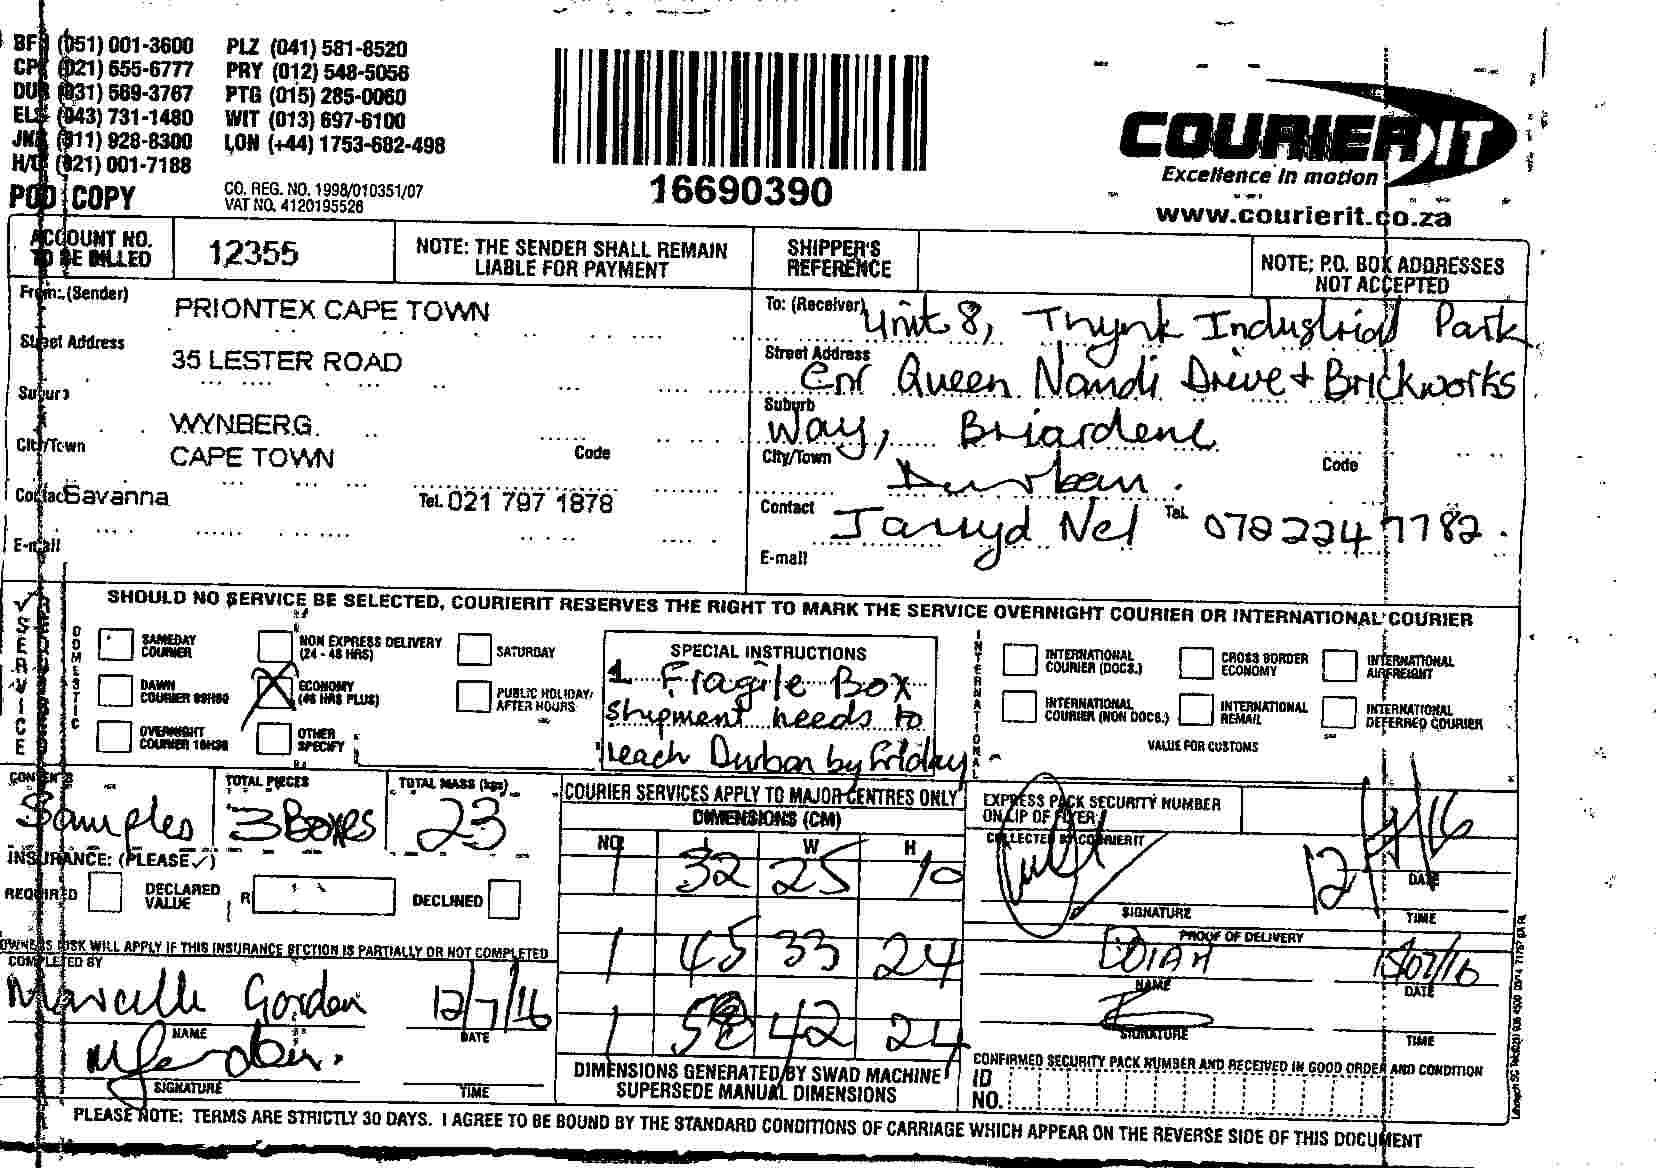 BFN (051) 001-3600 PLZ (041) 581-8520
CPT (021) 555-6777 PRY (012) 548-5056
DUR (031) 569-3767 PTG (015) 285-0060
ELS (043) 731-1480 WIT (013) 697-6100
JNB (011) 928-8300 LON (+44) 1753-682-498
H/O (021) 001-7188
POD COPY
CO. REG. NO. 1998/010351/07
VAT NO. 4120195526
16690390
COURIER IT
Excellence in motion
www.courierit.co.za
ACCOUNT NO. TO BE BILLED
12355
NOTE: THE SENDER SHALL REMAIN LIABLE FOR PAYMENT
SHIPPER'S REFERENCE
NOTE: P.O. BOX ADDRESSES NOT ACCEPTED
From: (Sender) PRIONTEX CAPE TOWN
Street Address 35 LESTER ROAD
Suburb WYNBERG.
City/Town CAPE TOWN Code
Contact Savanna Tel. 021 797 1878
E-mail
To: (Receiver) Unit 8, Thynk Industrial Park
Street Address Cnr Queen Nandi Drive + Brickworks
Suburb Way, Briardene
City/Town Durban. Code
Contact Jarryd Nel Tel. 078 224 7782.
E-mail
SHOULD NO SERVICE BE SELECTED, COURIERIT RESERVES THE RIGHT TO MARK THE SERVICE OVERNIGHT COURIER OR INTERNATIONAL COURIER
✓ SERVICE
DOMESTIC
SAMEDAY COURIER
NON EXPRESS DELIVERY (24 - 48 HRS)
SATURDAY
DAWN COURIER 09H00
ECONOMY (48 HRS PLUS)
PUBLIC HOLIDAY/ AFTER HOURS
OVERNIGHT COURIER 10H30
OTHER SPECIFY
SPECIAL INSTRUCTIONS
1 Fragile Box
shipment needs to
reach Durban by Friday
INTERNATIONAL
INTERNATIONAL COURIER (DOCS.)
CROSS BORDER ECONOMY
INTERNATIONAL AIRFREIGHT
INTERNATIONAL COURIER (NON DOCS.)
INTERNATIONAL REMAIL
INTERNATIONAL DEFERRED COURIER
VALUE FOR CUSTOMS
CONTENTS Samples
TOTAL PIECES 3 Boxes
TOTAL MASS (kgs) 23
INSURANCE: (PLEASE ✓)
REQUIRED DECLARED VALUE R DECLINED
OWNERS RISK WILL APPLY IF THIS INSURANCE SECTION IS PARTIALLY OR NOT COMPLETED
COMPLETED BY
Marcelle Gordon 12/7/16
NAME DATE
SIGNATURE TIME
COURIER SERVICES APPLY TO MAJOR CENTRES ONLY
DIMENSIONS (CM)
NO L W H
1 32 25 10
1 45 33 24
1 58 42 24
DIMENSIONS GENERATED BY SWAD MACHINE
SUPERSEDE MANUAL DIMENSIONS
EXPRESS PACK SECURITY NUMBER ON LIP OF FLYER
COLLECTED BY COURIERIT
12/7/16
SIGNATURE DATE
TIME
PROOF OF DELIVERY
15/07/16
NAME DATE
SIGNATURE TIME
CONFIRMED SECURITY PACK NUMBER AND RECEIVED IN GOOD ORDER AND CONDITION
ID NO.
PLEASE NOTE: TERMS ARE STRICTLY 30 DAYS. I AGREE TO BE BOUND BY THE STANDARD CONDITIONS OF CARRIAGE WHICH APPEAR ON THE REVERSE SIDE OF THIS DOCUMENT